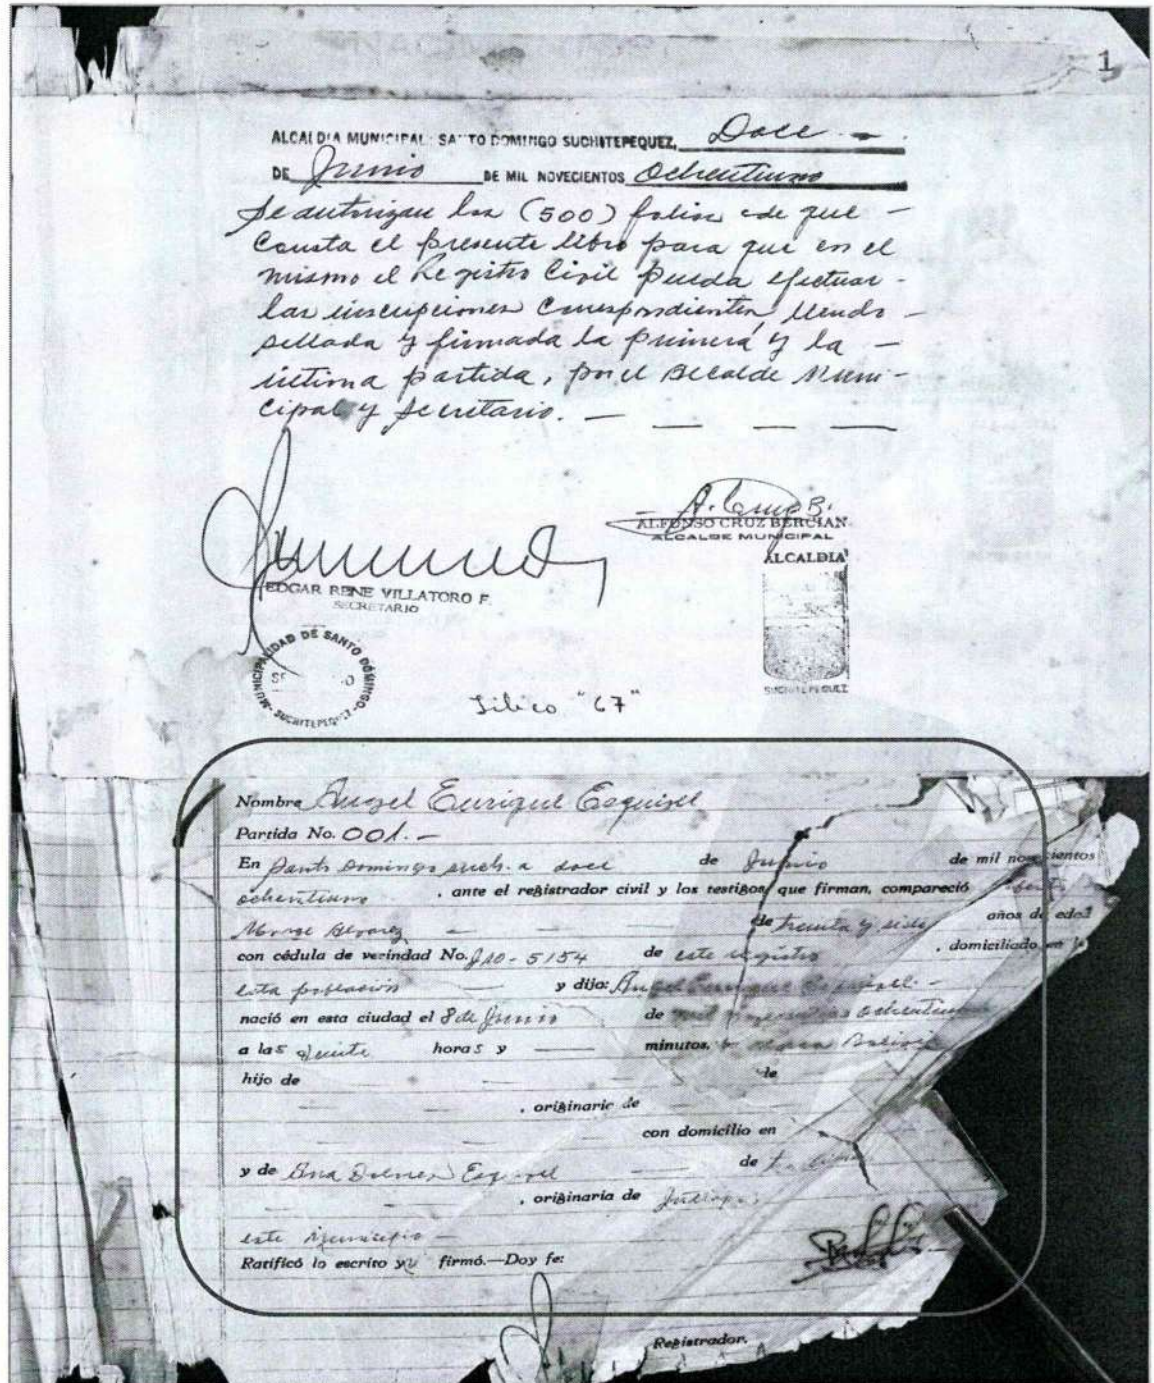 1
ALCALDIA MUNICIPAL: SANTO DOMINGO SUCHITEPEQUEZ, Doce
DE Junio DE MIL NOVECIENTOS Ochentiuno
Se autorizan los (500) folios de que
consta el presente libro para que en el
mismo el Registro Civil pueda efectuar
las inscripciones correspondientes, siendo
sellada y firmada la primera y la
última partida, por el Alcalde Muni-
cipal y Secretario.
A. Cruz B.
ALFONSO CRUZ BERCIAN
ALCALDE MUNICIPAL
ALCALDIA
EDGAR RENE VILLATORO F.
SECRETARIO
MUNICIPALIDAD DE SANTO DOMINGO
SUCHITEPEQUEZ
SUCHITEPEQUEZ
"67"
Nombre Angel Enrique Esquivel
Partida No. 001.-
En Santo Domingo such. a doce de Junio de mil novecientos
ochentiuno, ante el registrador civil y los testigos que firman, compareció
Alvarez de treinta y años de edad
con cédula de vecindad No. J10-5154 de este registro, domiciliado en
esta población y dijo: Angel Enrique Esquivel.-
nació en esta ciudad el 8 de Junio de mil novecientos ochentiuno
a las horas y minutos,
hijo de de
, originario de
con domicilio en
y de Ana Esquivel de
, originaria de
este Municipio
Ratificó lo escrito y firmó.—Doy fe:
Registrador.